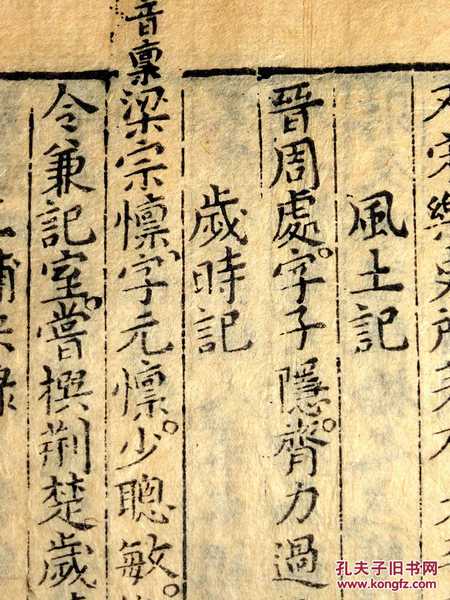 風土記
晉周處。字子隱。膂力過
歲時記
音稟
梁宗懍、字元懍。少聰敏。
令兼記室。嘗撰荆楚歲
孔夫子旧书网
www.kongfz.com